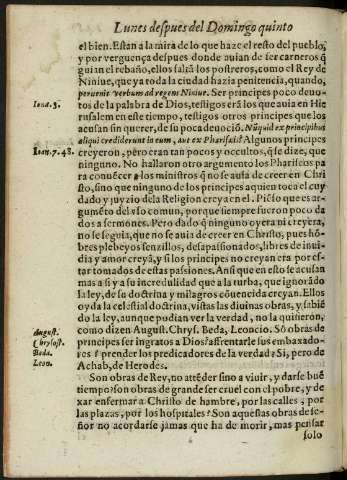 Lunes despues del Domingo quinto
el bien. Estan a la mira de lo que haze el resto del pueblo,
y por verguença despues donde auian de ser carneros q̃
guian el rebaño, ellos salrã los postreros, como el Rey de
Niniue, que ya toda la ciudad hazia penitencia, quando,
peruenit verbum ad regem Niniue. Ser principes poco deuo-
Iona. 3.
tos de la palabra de Dios, testigos erã los que auia en Hie
rusalem en este tiempo, testigos otros principes que los
acusan sin querer, de su poca deuociõ. Nũquid ex principibus
aliqui crediderunt in eum, aut ex Pharisæis? Algunos principes
Ioan. 7. 48.
creyeron, pero eran tan pocos y ocultos, q̃ se dize, que
ninguno. No hallaron otro argumento los Phariseos pa
ra conuẽcer a los ministros q̃ no se auia de creer en Chri
sto, sino que ninguno de los principes aquien toca el cuy
dado y juyzio dela Religion creya en el. Pẽso que es ar-
gumẽto del vso comun, porque siempre fueron poco da
dos a sermones. Pero dado q̃ ninguno oyera ni creyera,
no se seguia, que no se auia de creer en Christo, pues hõ-
bres plebeyos senzillos, desapassionados, libres de inui-
dia y amor creyã, y si los principes no creyan era por es-
tar tomados de estas passiones. Ansi que en esto se acusan
mas a si y a su incredulidad que a la turba, que ignorãdo
la ley, de su doctrina y milagros cõuencida creyan. Ellos
oyda la celestial doctrina, vistas las diuinas obras, y sabiẽ
do la ley, aunque podian ver la verdad, no la quisieron,
como dizen August. Chrys. Beda, Leoncio. Sõ obras de
August.
Chrysost.
Beda.
Leon.
principes ser ingratos a Dios? affrentarle sus embaxado-
res? prender los predicadores de la verdad? Si, pero de
Achab, de Herodes.
Son obras de Rey, no attẽder sino a viuir, y darse buẽ
tiempo? son obras de grande ser cruel con el pobre, y de
xar enfermar a Christo de hambre, por las calles, por
las plazas, por los hospitales? Son aquestas obras de se-
ñor no acordarse jamas que ha de morir, mas pensar
solo